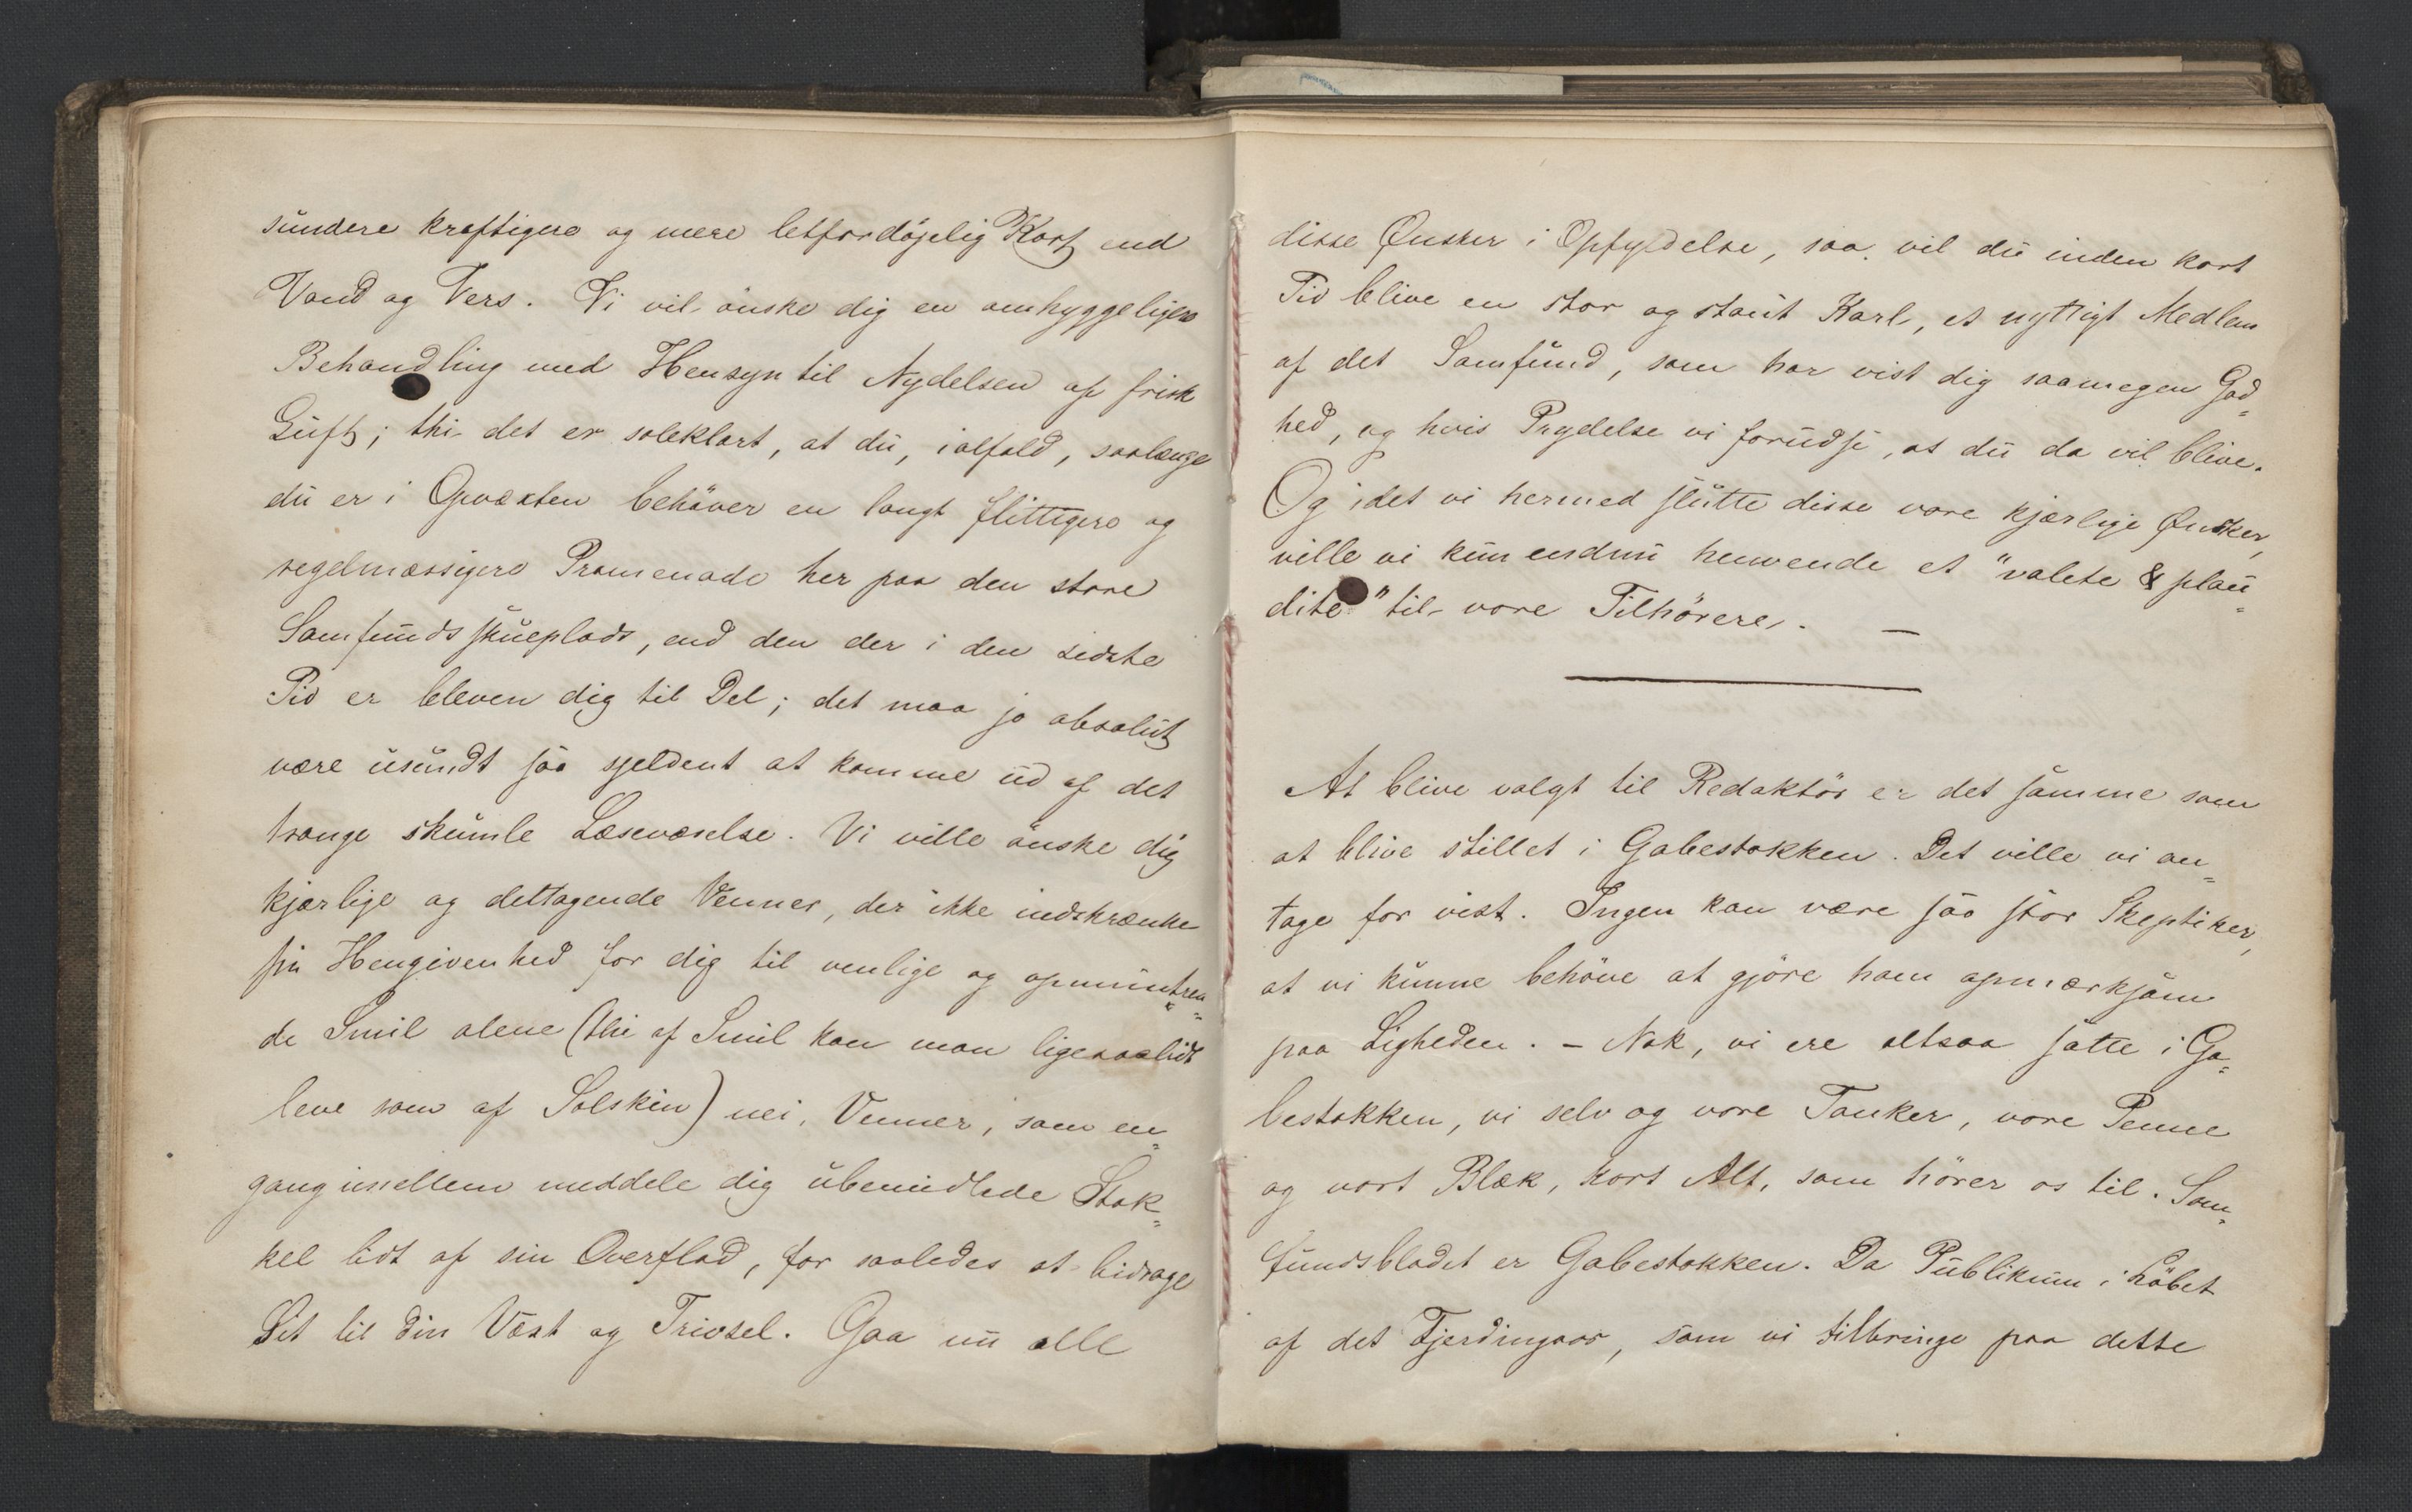 sundere kraftigere og mere letfordøjelig Kost end
Vand og Vers. Vi vil ønske dig en omhyggeligere
Behandling med Hensyn til Nydelsen af frisk
Luft; thi det er soleklart, at du, ialfald, saalænge
du er i Opvæxten behøver en langt flittigere og
regelmæssigere Promenade her paa den store
Samfundsskueplads, end den der i den sidste
Tid er bleven dig til Del; det maa jo absolut
være usundt saa sjeldent at komme ud af det
trange skumle Læseværelse. Vi ville ønske dig
kjærlige og deltagende Venner, der ikke indskrænke
sin Hengivenhed for dig til venlige og opmuntren=
de Smil alene (thi af Smil kan man ligesaalidt
leve som af Solskin) nei, Venner, som en=
gang imellem meddele dig ubemidlede Stak=
kel lidt af sin Overflod, for saaledes at bidrage
Sit til din Væxt og Trivsel. Gaa nu alle
disse Ønsker i Opfyldelse, saa vil du inden kort
Tid blive en stor og staut Karl, et nyttigt Medlem
af det Samfund, som har vist dig saamegen God=
hed, og hvis Prydelse vi forudse, at du da vil blive.
Og idet vi hermed slutte disse vore kjærlige Ønsker,
ville vi kun endnu henvende et "valete & plau=
dite" til vore Tilhørere. —
At blive valgt til Redaktør er det samme som
at blive stillet i Gabestokken. Det ville vi an=
tage for vist. Ingen kan være saa stor Skeptiker,
at vi kunne behøve at gjøre ham opmærksom
paa Ligheden. – Nok, vi ere altsaa satte i Ga=
bestokken, vi selv og vore Tanker, vore Penne
og vort Blæk, kort Alt, som hører os til. Sam=
fundsbladet er Gabestokken. Da Publikum i Løbet
af det Fjerdingaar, som vi tilbringe paa dette